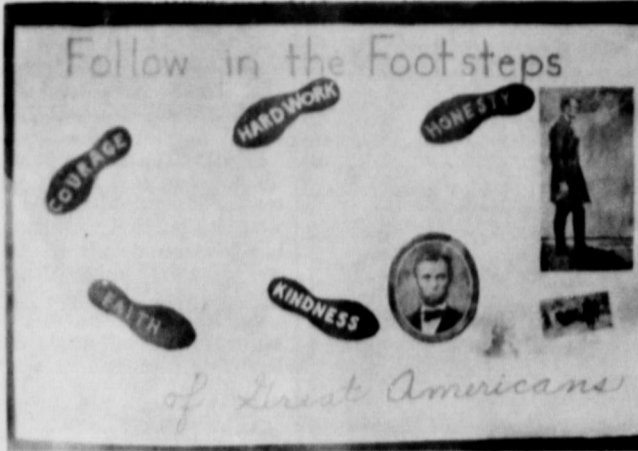 Follow in the Footsteps
COURAGE
HARD WORK
HONESTY
FAITH
KINDNESS
of Great Americans